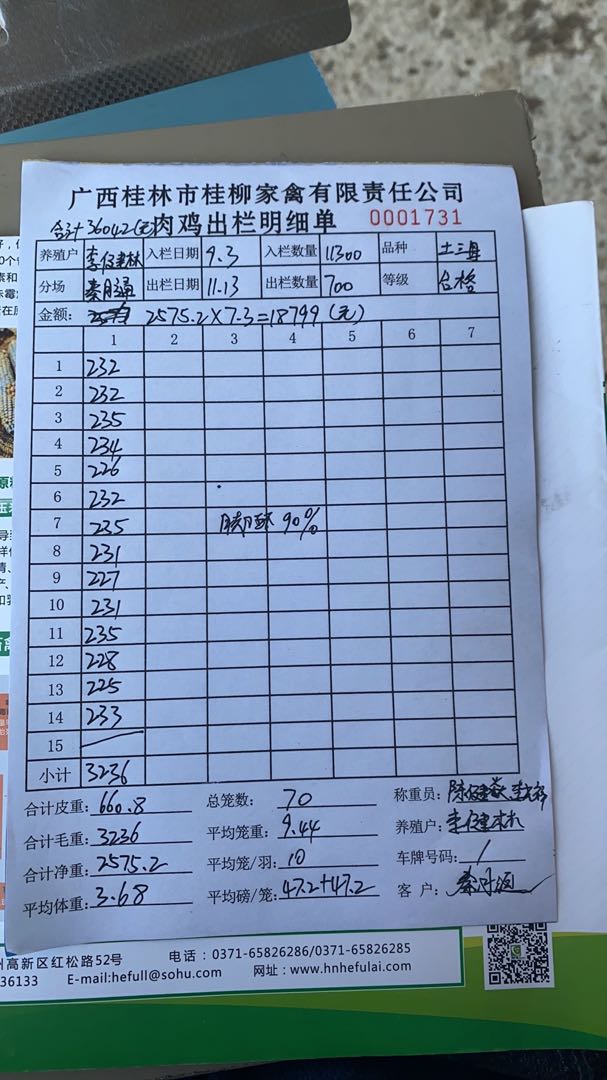 广西桂林市桂柳家禽有限责任公司
合计36042(元)肉鸡出栏明细单 0001731
养殖户 李健林 入栏日期 9.3 入栏数量 11300 品种 土三
分场 秦月通 出栏日期 11.13 出栏数量 700 等级 合格
金额: 2575.2×7.3=18799(元)
1 2 3 4 5 6 7
1 232
2 232
3 235
4 234
5 226
6 232
7 235 90%
8 231
9 227
10 231
11 235
12 228
13 225
14 233
15
小计 3236
合计皮重: 660.8 总笼数: 70 称重员:
合计毛重: 3236 平均笼重: 9.44 养殖户: 李健林
合计净重: 2575.2 平均笼/羽: 10 车牌号码: /
平均体重: 3.68 平均磅/笼: 47.2+47.2 客户:
州高新区红松路52号 电话:0371-65826286/0371-65826285
36133 E-mail:hefull@sohu.com 网址:www.hnhefulai.com